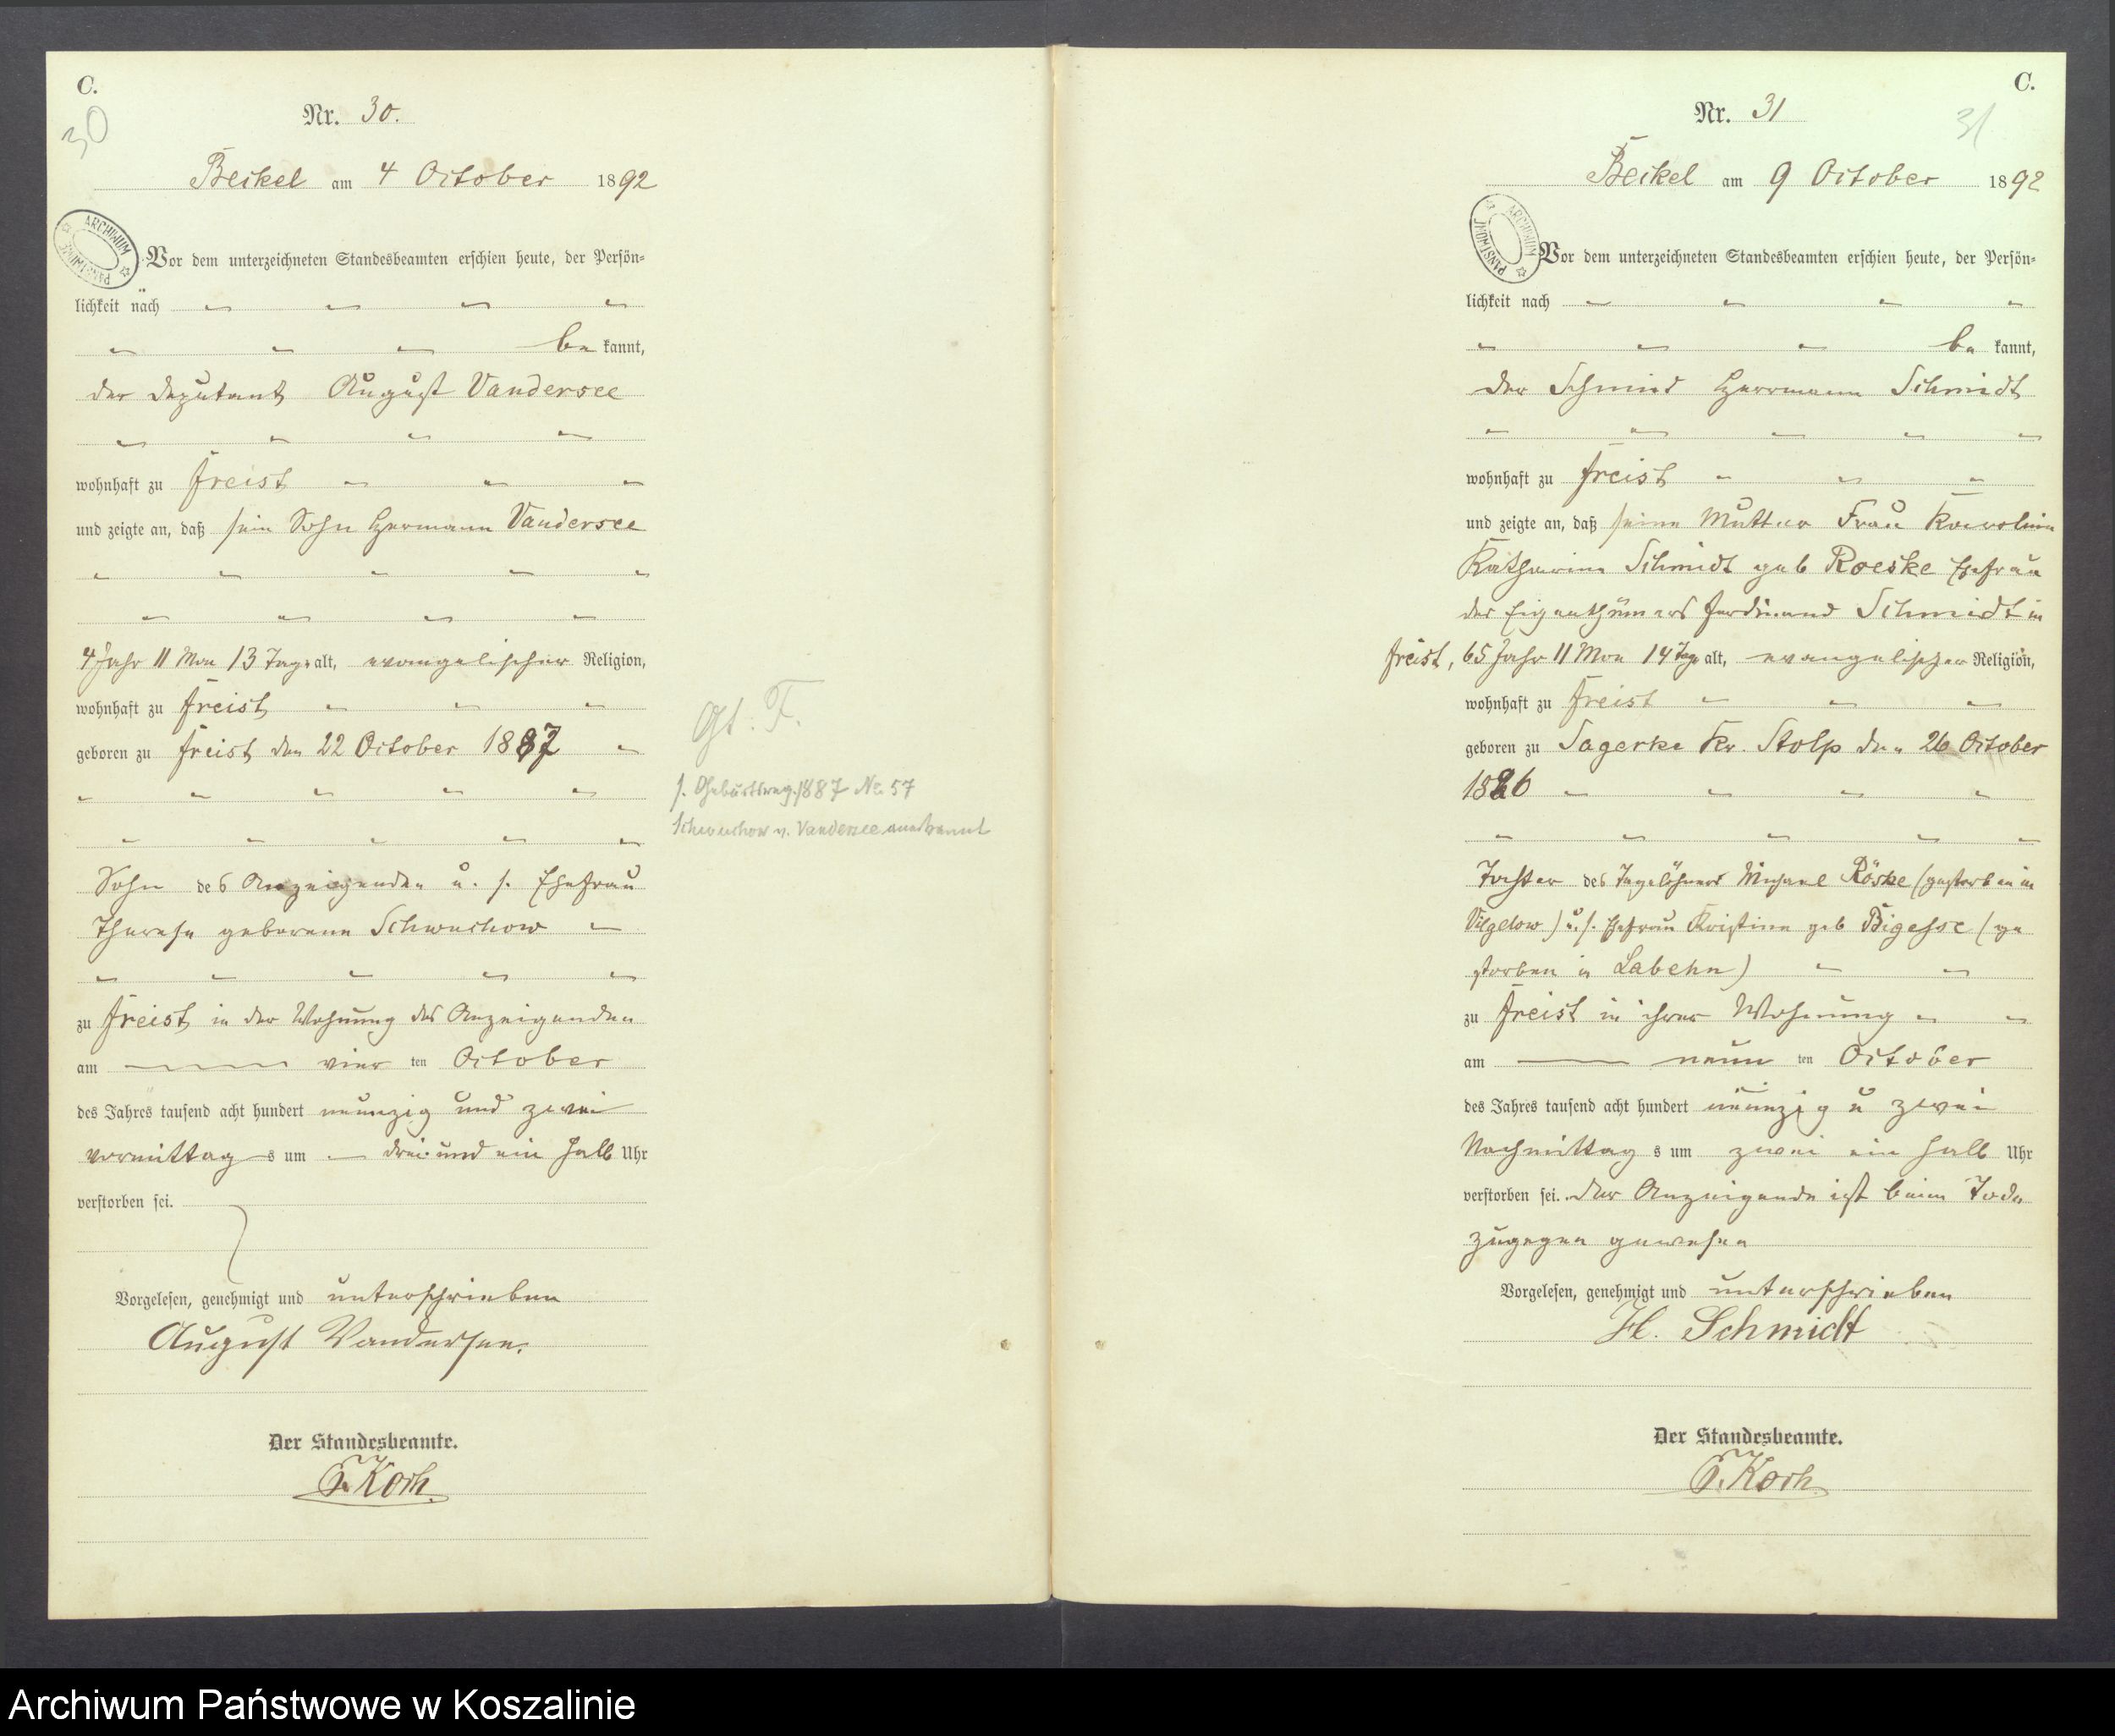 C.
30
Nr. 30.
Beckel am 4 October 1892
ARCHIWUM PAŃSTWOWE
Vor dem unterzeichneten Standesbeamten erschien heute, der Persön-
lichkeit nach
be kannt,
der Deputant August Vandersee
wohnhaft zu Freist
und zeigte an, daß sein Sohn Hermann Vandersee
4 Jahr 11 Mon 13 Tage alt, evangelischer Religion,
wohnhaft zu Freist
geboren zu Freist den 22 October 1887
Sohn des Anzeigenden u. s. Ehefrau
Therese geborene Schwuchow
zu Freist in der Wohnung des Anzeigenden
am vier ten October
des Jahres tausend acht hundert neunzig und zwei
vormittag s um drei und ein halb Uhr
verstorben sei.
Vorgelesen, genehmigt und unterschrieben
August Vandersee.
Der Standesbeamte.
Koch
Gt. F.
s. Geburtsreg. 1887 No 57
Schwuchow v. Vandersee anerkannt
C.
31
Nr. 31
Beckel am 9 October 1892
ARCHIWUM PAŃSTWOWE
Vor dem unterzeichneten Standesbeamten erschien heute, der Persön-
lichkeit nach
be kannt,
der Schmied Herrmann Schmidt
wohnhaft zu Freist
und zeigte an, daß seine Mutter Frau Karoline
Katharine Schmidt geb Roeske Ehefrau
des Eigenthümers Ferdinand Schmidt in
Freist, 65 Jahr 11 Mon 14 Tage alt, evangelischer Religion,
wohnhaft zu Freist
geboren zu Sagerke Kr. Stolp den 26 October
1826
Tochter des Tagelöhners Michael Röske (gestorben in
Vilgelow) u. s. Ehefrau Kristine geb Bigesse (ge
storben in Labehn)
zu Freist in ihrer Wohnung
am neun ten October
des Jahres tausend acht hundert neunzig u zwei
Nachmittag s um zwei ein halb Uhr
verstorben sei. Der Anzeigende ist beim Tode
zugegen gewesen
Vorgelesen, genehmigt und unterschrieben
H. Schmidt
Der Standesbeamte.
Koch
Archiwum Państwowe w Koszalinie